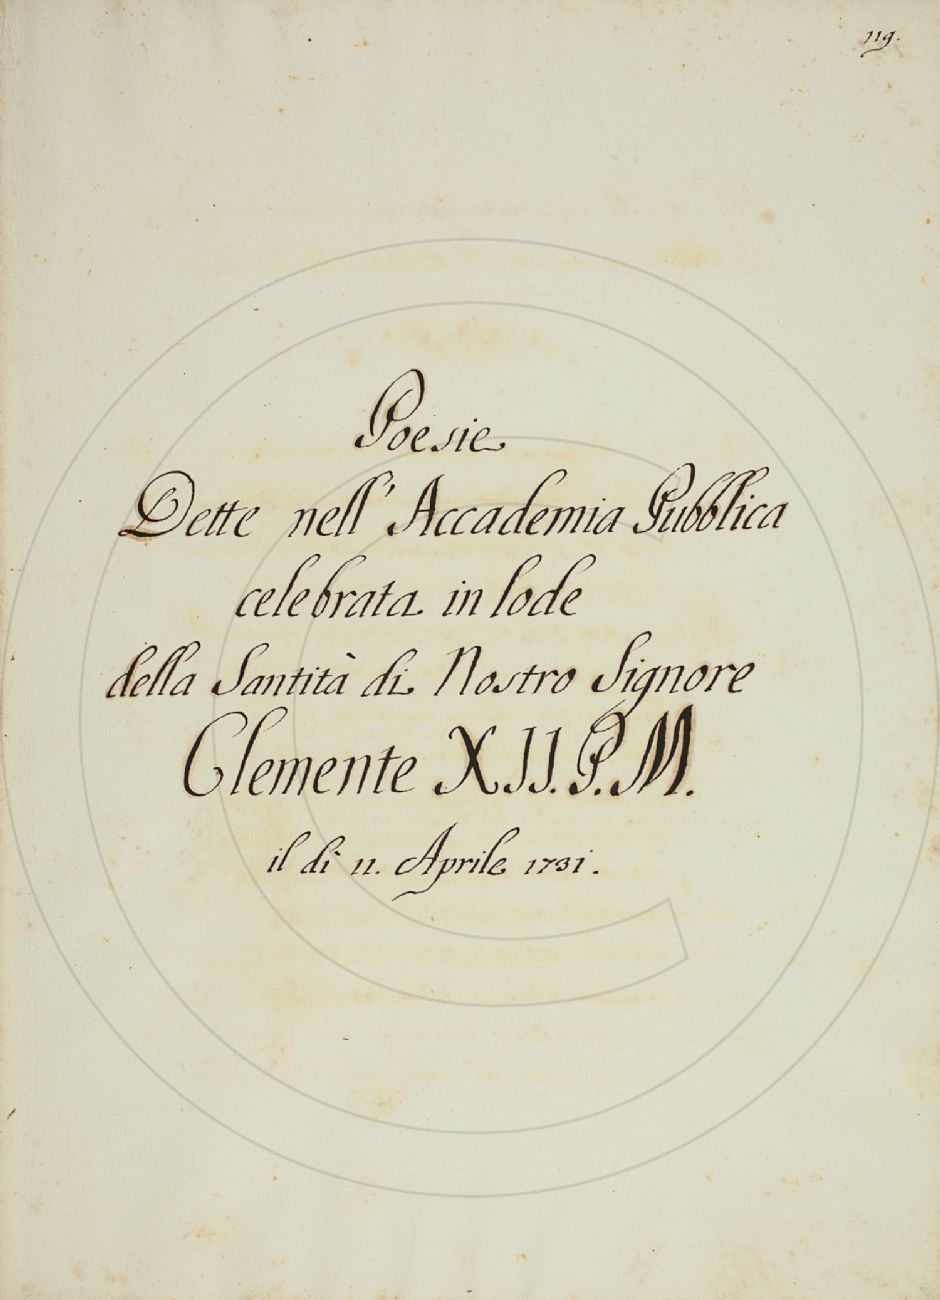 119.
Poesie
Dette nell' Accademia Pubblica
celebrata in lode
della Santità di Nostro Signore
Clemente XII. P. M.
il dì 11. Aprile 1731.